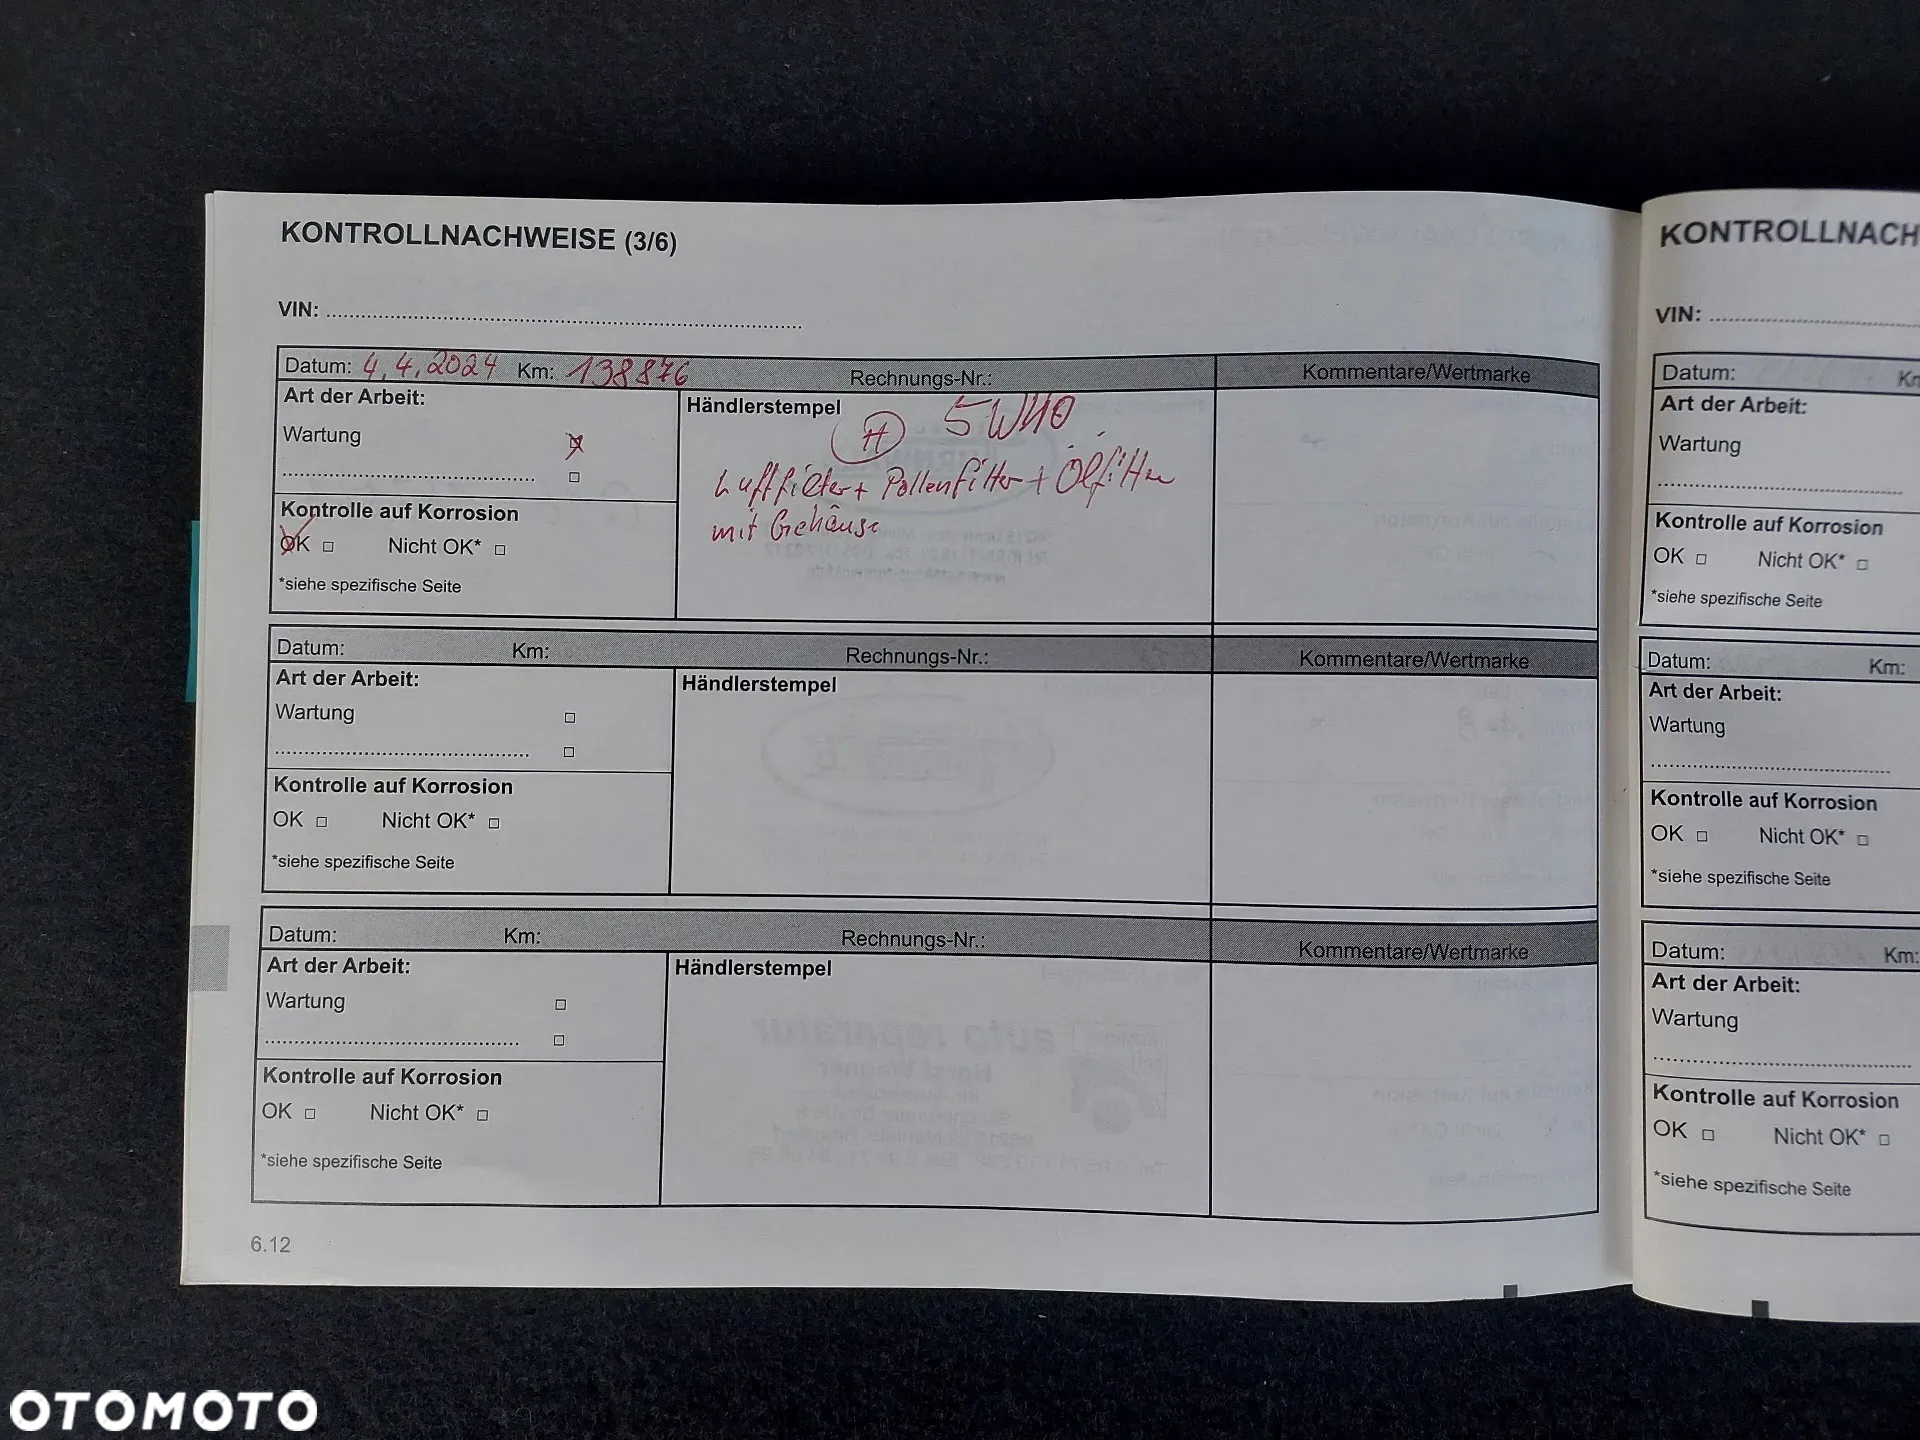 KONTROLLNACHWEISE (3/6)
VIN:
Datum: 4.4.2024 Km: 138876 Rechnungs-Nr.: Kommentare/Wertmarke
Art der Arbeit:
Wartung
Händlerstempel
H 5W40
Luftfilter + Pollenfilter + Ölfilter
mit Gehäuse
Kontrolle auf Korrosion
OK Nicht OK*
*siehe spezifische Seite
Datum: Km: Rechnungs-Nr.: Kommentare/Wertmarke
Art der Arbeit:
Wartung
Händlerstempel
Kontrolle auf Korrosion
OK Nicht OK*
*siehe spezifische Seite
Datum: Km: Rechnungs-Nr.: Kommentare/Wertmarke
Art der Arbeit:
Wartung
Händlerstempel
Kontrolle auf Korrosion
OK Nicht OK*
*siehe spezifische Seite
6.12
KONTROLLNACH
VIN:
Datum: Km
Art der Arbeit:
Wartung
Kontrolle auf Korrosion
OK Nicht OK*
*siehe spezifische Seite
Datum: Km:
Art der Arbeit:
Wartung
Kontrolle auf Korrosion
OK Nicht OK*
*siehe spezifische Seite
Datum: Km:
Art der Arbeit:
Wartung
Kontrolle auf Korrosion
OK Nicht OK*
*siehe spezifische Seite
OTOMOTO